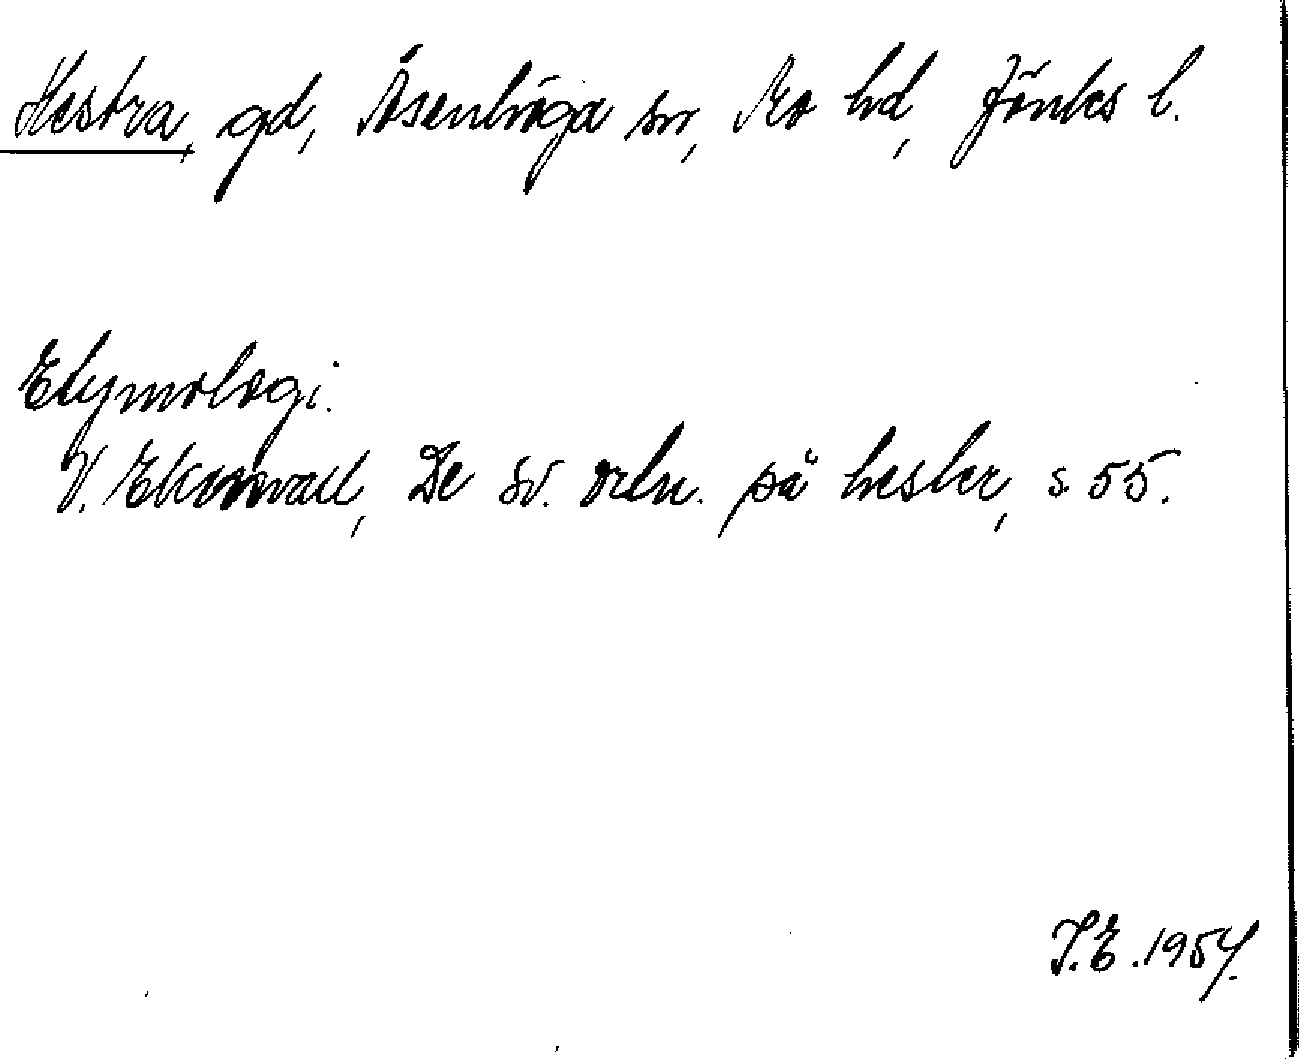 Hestra, gd, Åsenhöga sn, Mo hd, Jönks l.
Etymologi.
V. Ekenvall, De sv. ortn. på hester, s. 55.
I.E. 1957.